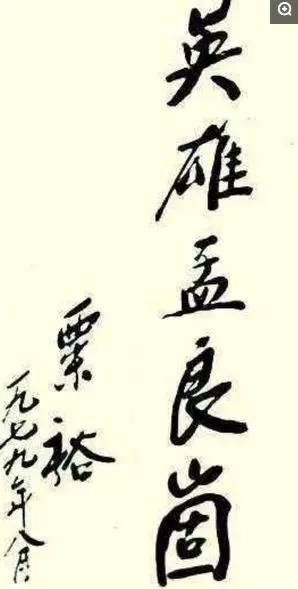 英雄孟良崮
粟裕
一九七九年八月